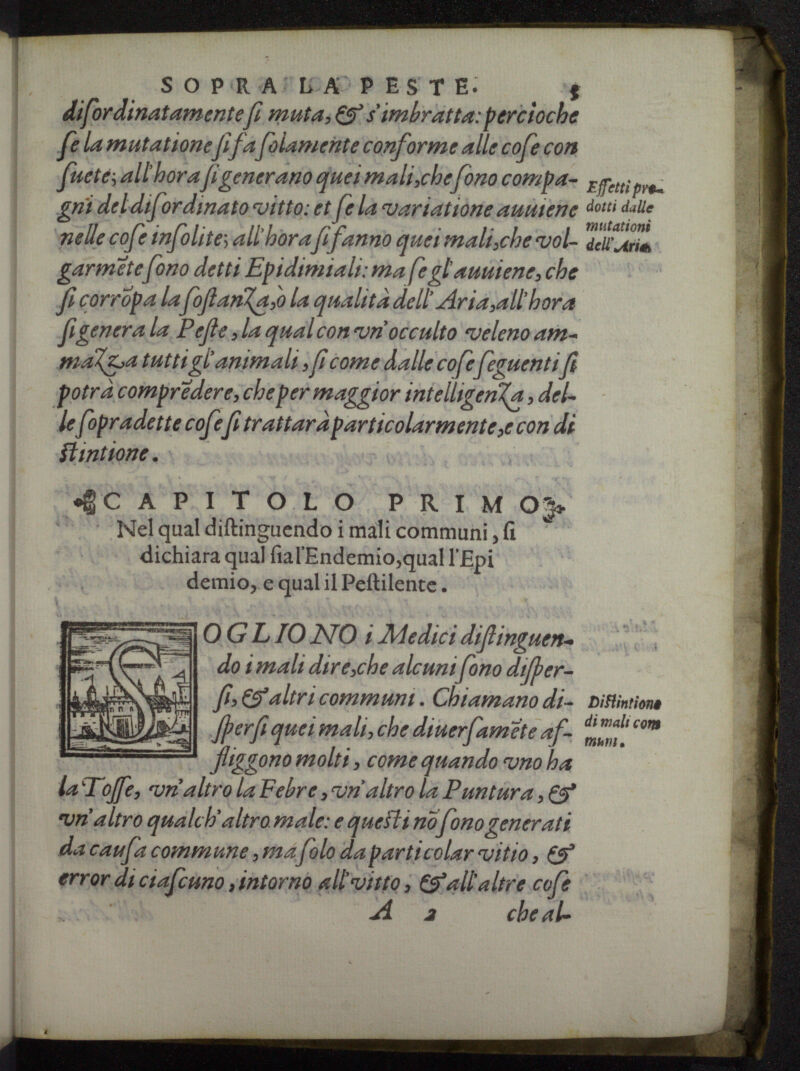 SOPRA LA PESTE. 5
diſordinatamente ſi muta, & s'imbratta: percioche
ſe la mutatione ſi fa ſolamente conforme alle coſe con
ſuete; all'hora ſi generano quei mali, che ſono compa-
gni del diſordinato vitto: et ſe la variatione auuiene
nelle coſe inſolite; all'hora ſi fanno quei mali, che vol-
garmẽte ſono detti Epidimiali: ma ſe gl'auuiene, che
ſi corrõpa la ſoſtanza, ò la qualità dell'Aria, all'hora
ſi genera la Peſte, la qual con vn'occulto veleno am-
mazza tutti gl'animali, ſi come dalle coſe ſeguenti ſi
potrà comprẽdere, che per maggior intelligenza, del-
le ſopradette coſe ſi trattarà particolarmente, e con di
ſtintione.
Effetti pro-
dotti dalle
mutationi
dell'Aria
CAPITOLO PRIMO
Nel qual diſtinguendo i mali communi, ſi
dichiara qual ſia l'Endemio, qual l'Epi
demio, e qual il Peſtilente.
SOGLIONO i Medici diſtinguen-
do i mali dire, che alcuni ſono diſper-
ſi, & altri communi. Chiamano di-
ſperſi quei mali, che diuerſamẽte af-
fliggono molti, come quando vno ha
la Toſſe, vn'altro la Febre, vn'altro la Puntura, &
vn'altro qualch'altro male: e queſti nõ ſono generati
da cauſa commune, ma ſolo da particolar vitio, &
error di ciaſcuno, intorno all'vitto, & all'altre coſe
Diſtintione
di mali com
muni.
A 2 che al-